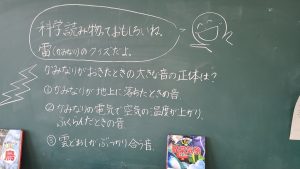 科学読み物っておもしろいね。
雷(かみなり)のクイズだよ。
かみなりがおきたときの大きな音の正体は?
①かみなりが地上に落ちたときの音
②かみなりの電気で空気の温度が上がり、
ふくらんだときの音
③雲と雲がぶつかり合う音